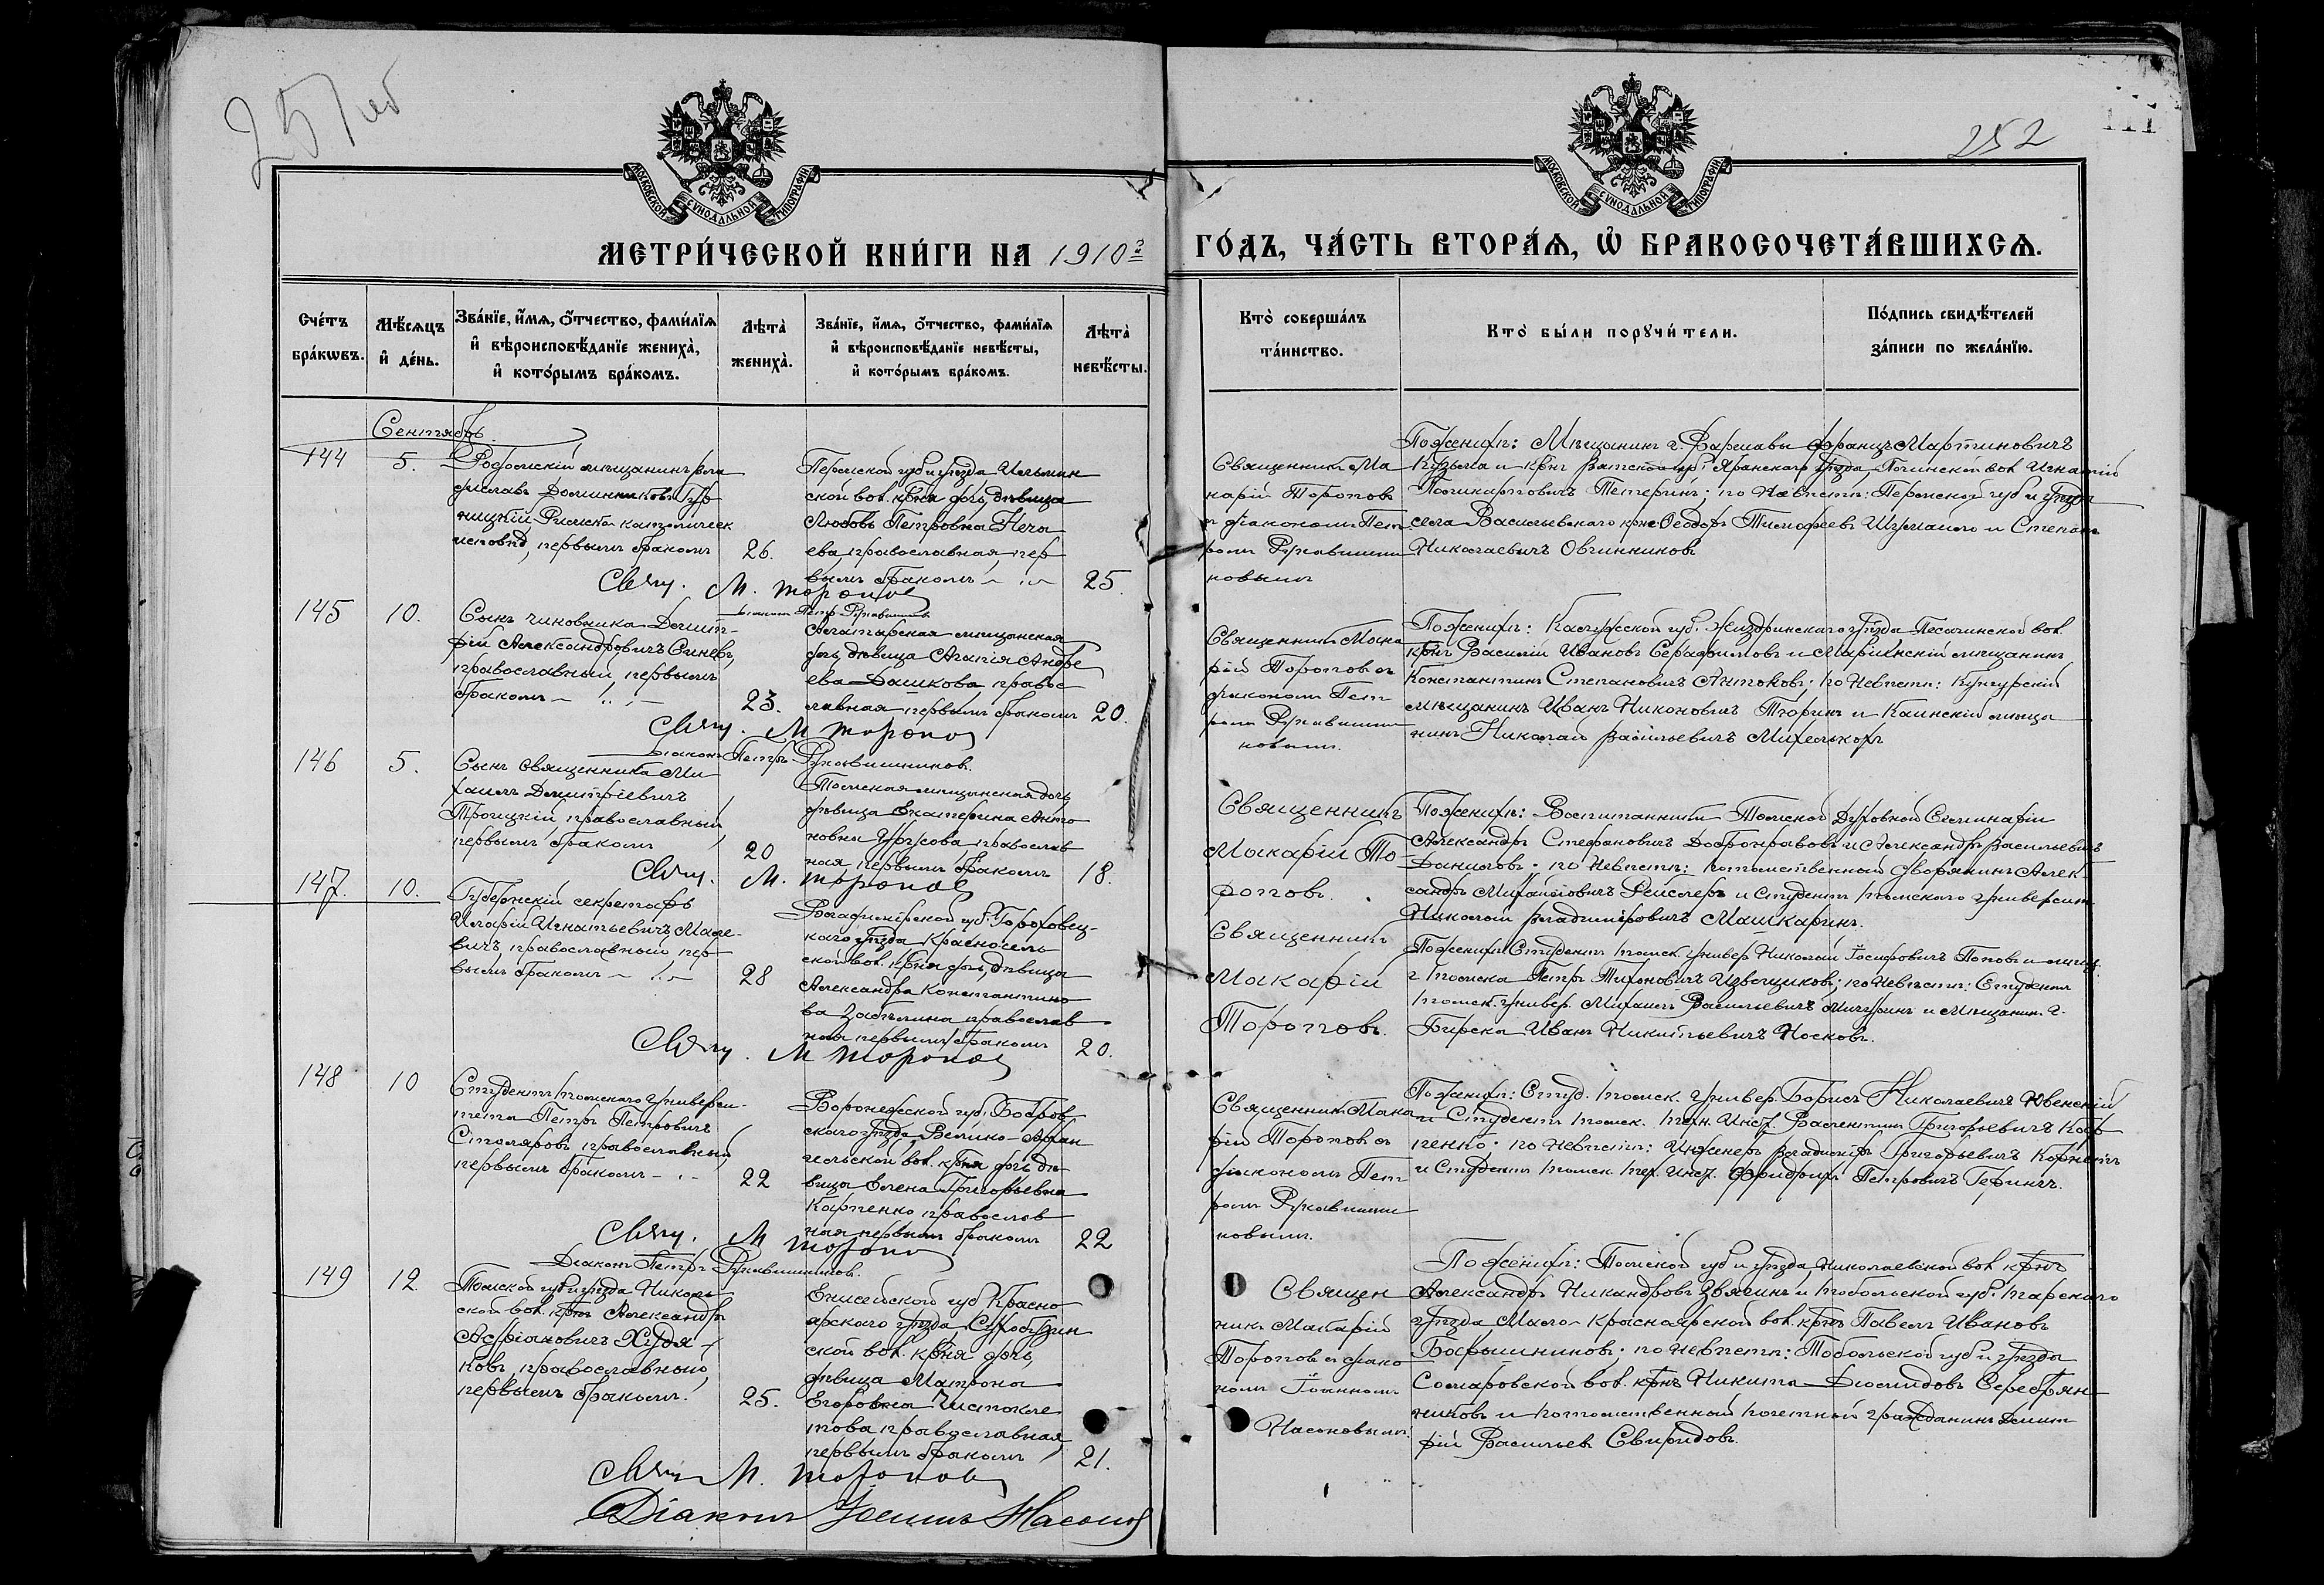 251 об
252
МОСКОВСКОЙ СѴНОДАЛЬНОЙ ТИПОГРАФІИ
МОСКОВСКОЙ СѴНОДАЛЬНОЙ ТИПОГРАФІИ
МЕТРИ́ЧЕСКОЙ КНИ́ГИ НА 1910 ГО́ДЪ, ЧА́СТЬ ВТОРА́Ѧ, Ѡ҆ БРАКОСОЧЕТА́ВШИХСѦ.
Сче́тъ
бра́кѡвъ.
Мѣ́сѧцъ
и҆ де́нь.
Зва́нїе, и҆́мѧ, ѻ҆́тчество, фами́лїѧ
и҆ вѣроисповѣ́данїе жениха̀,
и҆ кото́рымъ бра́комъ.
Лѣта̀
жениха̀.
Зва́нїе, и҆́мѧ, ѻ҆́тчество, фами́лїѧ
и҆ вѣроисповѣ́данїе невѣ́сты,
и҆ кото́рымъ бра́комъ.
Лѣта̀
невѣ́сты.
Кто̀ соверша́лъ
та́инство.
Кто̀ бы́ли порꙋчи́тели.
По́дпись свидѣ́телей
за́писи по жела́нїю.
Сентябрь.
144
5.
мѣщанинъ
католическ
исповѣд, первымъ бракомъ
26.
Пермской губ и уѣзда
ской вол. кр-ня дочь, дѣвица
Любовь Петровна Неча
ева, православная, пер
вымъ бракомъ
25.
Священникъ Ма
карій Торопов
съ діакономъ Пет
ромъ Рукавишни
ковымъ
По женихѣ: Мѣщанинъ г. Варшавы Францъ Мартиновичъ
Кузьма и кр-нъ Вятской губ. Яранскаго уѣзда, вол. Игнатій
Поликарповичъ Тетеринъ; по невѣстѣ: Пермской губ и уѣзда
села Васильевскаго кр-не Ѳеодоръ Тимофеевъ и Степанъ
Николаевичъ Овчинниковъ
Свящ. М. Торопов
Діаконъ Петръ Рукавишников
145
10.
Сынъ чиновника Дмит-
рій Александровичъ Синевъ,
православный, первымъ
бракомъ
23.
Алатырская мѣщанская
дочь, дѣвица Агапія Андре
ева Дашкова, правос
лавная первымъ бракомъ
20.
Священникъ Мака
рій Торопов съ
діакономъ Пет
ромъ Рукавишни
ковымъ.
По женихѣ: Калужской губ. Жиздринскаго уѣзда Песоченской вол.
кр-нъ Василій Ивановъ Серафимовъ и Маріинскій мѣщанинъ
Константинъ Степановичъ Антоновъ; по невѣстѣ: Кунгурскій
мѣщанинъ Иванъ Никоновичъ Тюринъ и Каинскій мѣща
нинъ Николай Васильевичъ
Свящ. М Торопов
Діаконъ Петръ Рукавишников.
146
5.
Сынъ священника Ми
хаилъ Дмитріевичъ
Троицкій, православный,
первымъ бракомъ
20
Томская мѣщанская дочь
дѣвица Екатерина Анто
новна Урусова, православ
ная первымъ бракомъ
18.
Священникъ
Макарій То-
ропов.
По женихѣ: Воспитанники Томской Духовной Семинаріи
Александръ Стефановичъ Добронравовъ и Александръ Васильевичъ
Даниловъ; по невѣстѣ: потомственный дворянинъ Алек-
сандръ Михайловичъ и студентъ Томского университ.
Николай Владиміровичъ Машкаринъ.
Свящ. М. Торопов
147.
10.
Губернскій секретарь
Иларій Игнатьевичъ
вичъ православный пер
вымъ бракомъ
28
Владимірской губ. Гороховец-
каго уѣзда Красносель
ской вол. кр-ня дочь, дѣвица
Александра Константино
ва православ
ная первымъ бракомъ
20.
Священникъ
Макарій
Торопов.
По женихѣ: Студентъ Томск. Универ. Николай Іосифовичъ Поповъ и мѣщ.
г. Томска Петръ Тихоновичъ Извощиковъ; по невѣстѣ: Студентъ
Томск. универ. Михаилъ Васильевичъ Мичуринъ и мѣщанин. г.
Бирска Иванъ Никитьевичъ Носковъ.
Свящ. М Торопов
148
10
Студентъ Томскаго Универси-
тета Петръ Петровичъ
Столяровъ, православный,
первымъ бракомъ
22
Воронежской губ. Бобров
скаго уѣзда Велико-Архан
гельской вол. кр-ня дочь дѣ
вица Елена Григорьевна
Карпенко православ
ная первымъ бракомъ
22
Священникъ Мака
рій Торопов съ
діакономъ Пет
ромъ Рукавишни
ковымъ.
По женихѣ: Студ. Томск. Универ. Борисъ Николаевичъ Ювенскій
и Студентъ Томск. Техн. Инст. Валентинъ Григорьевичъ Кар
пенко; по невѣстѣ: Инженеръ Владиміръ Григорьевичъ
и Студентъ Томск. Тех. Инст. Фридрихъ Петровичъ Герингъ.
Свящ. М Торопов
Діаконъ Петръ Рукавишников.
149
12
Томской губ и уѣзда Николаев
ской вол. кр-нъ Александръ
Худя-
ковъ, православный,
первымъ бракомъ.
25.
Енисейской губ Красно
ярского уѣзда, Сухобузим
ской вол. кр-ня дочь,
дѣвица Матрона
Егоровна Чистокле
това православная,
первымъ бракомъ
21.
Священ
никъ Макарій
Торопов съ діако
номъ Іоанномъ
Насоновымъ.
По женихѣ: Томской губ и уѣзда, Николаевской вол. кр-нъ
Александръ Никандровъ Звягинъ и Тобольской губ. Тарскаго
уѣзда, Мало-Красноярской вол. кр-нъ Павелъ Ивановъ
Барышниковъ; по невѣстѣ: Тобольской губ и уѣзда
Самаровской вол. кр-нъ Никита Діомидовъ Серебрян-
никовъ и потомственный почетный гражданинъ Дмит
рій Васильев Свиридовъ.
Свящ М. Торопов
Діаконъ Іоаннъ Насонов